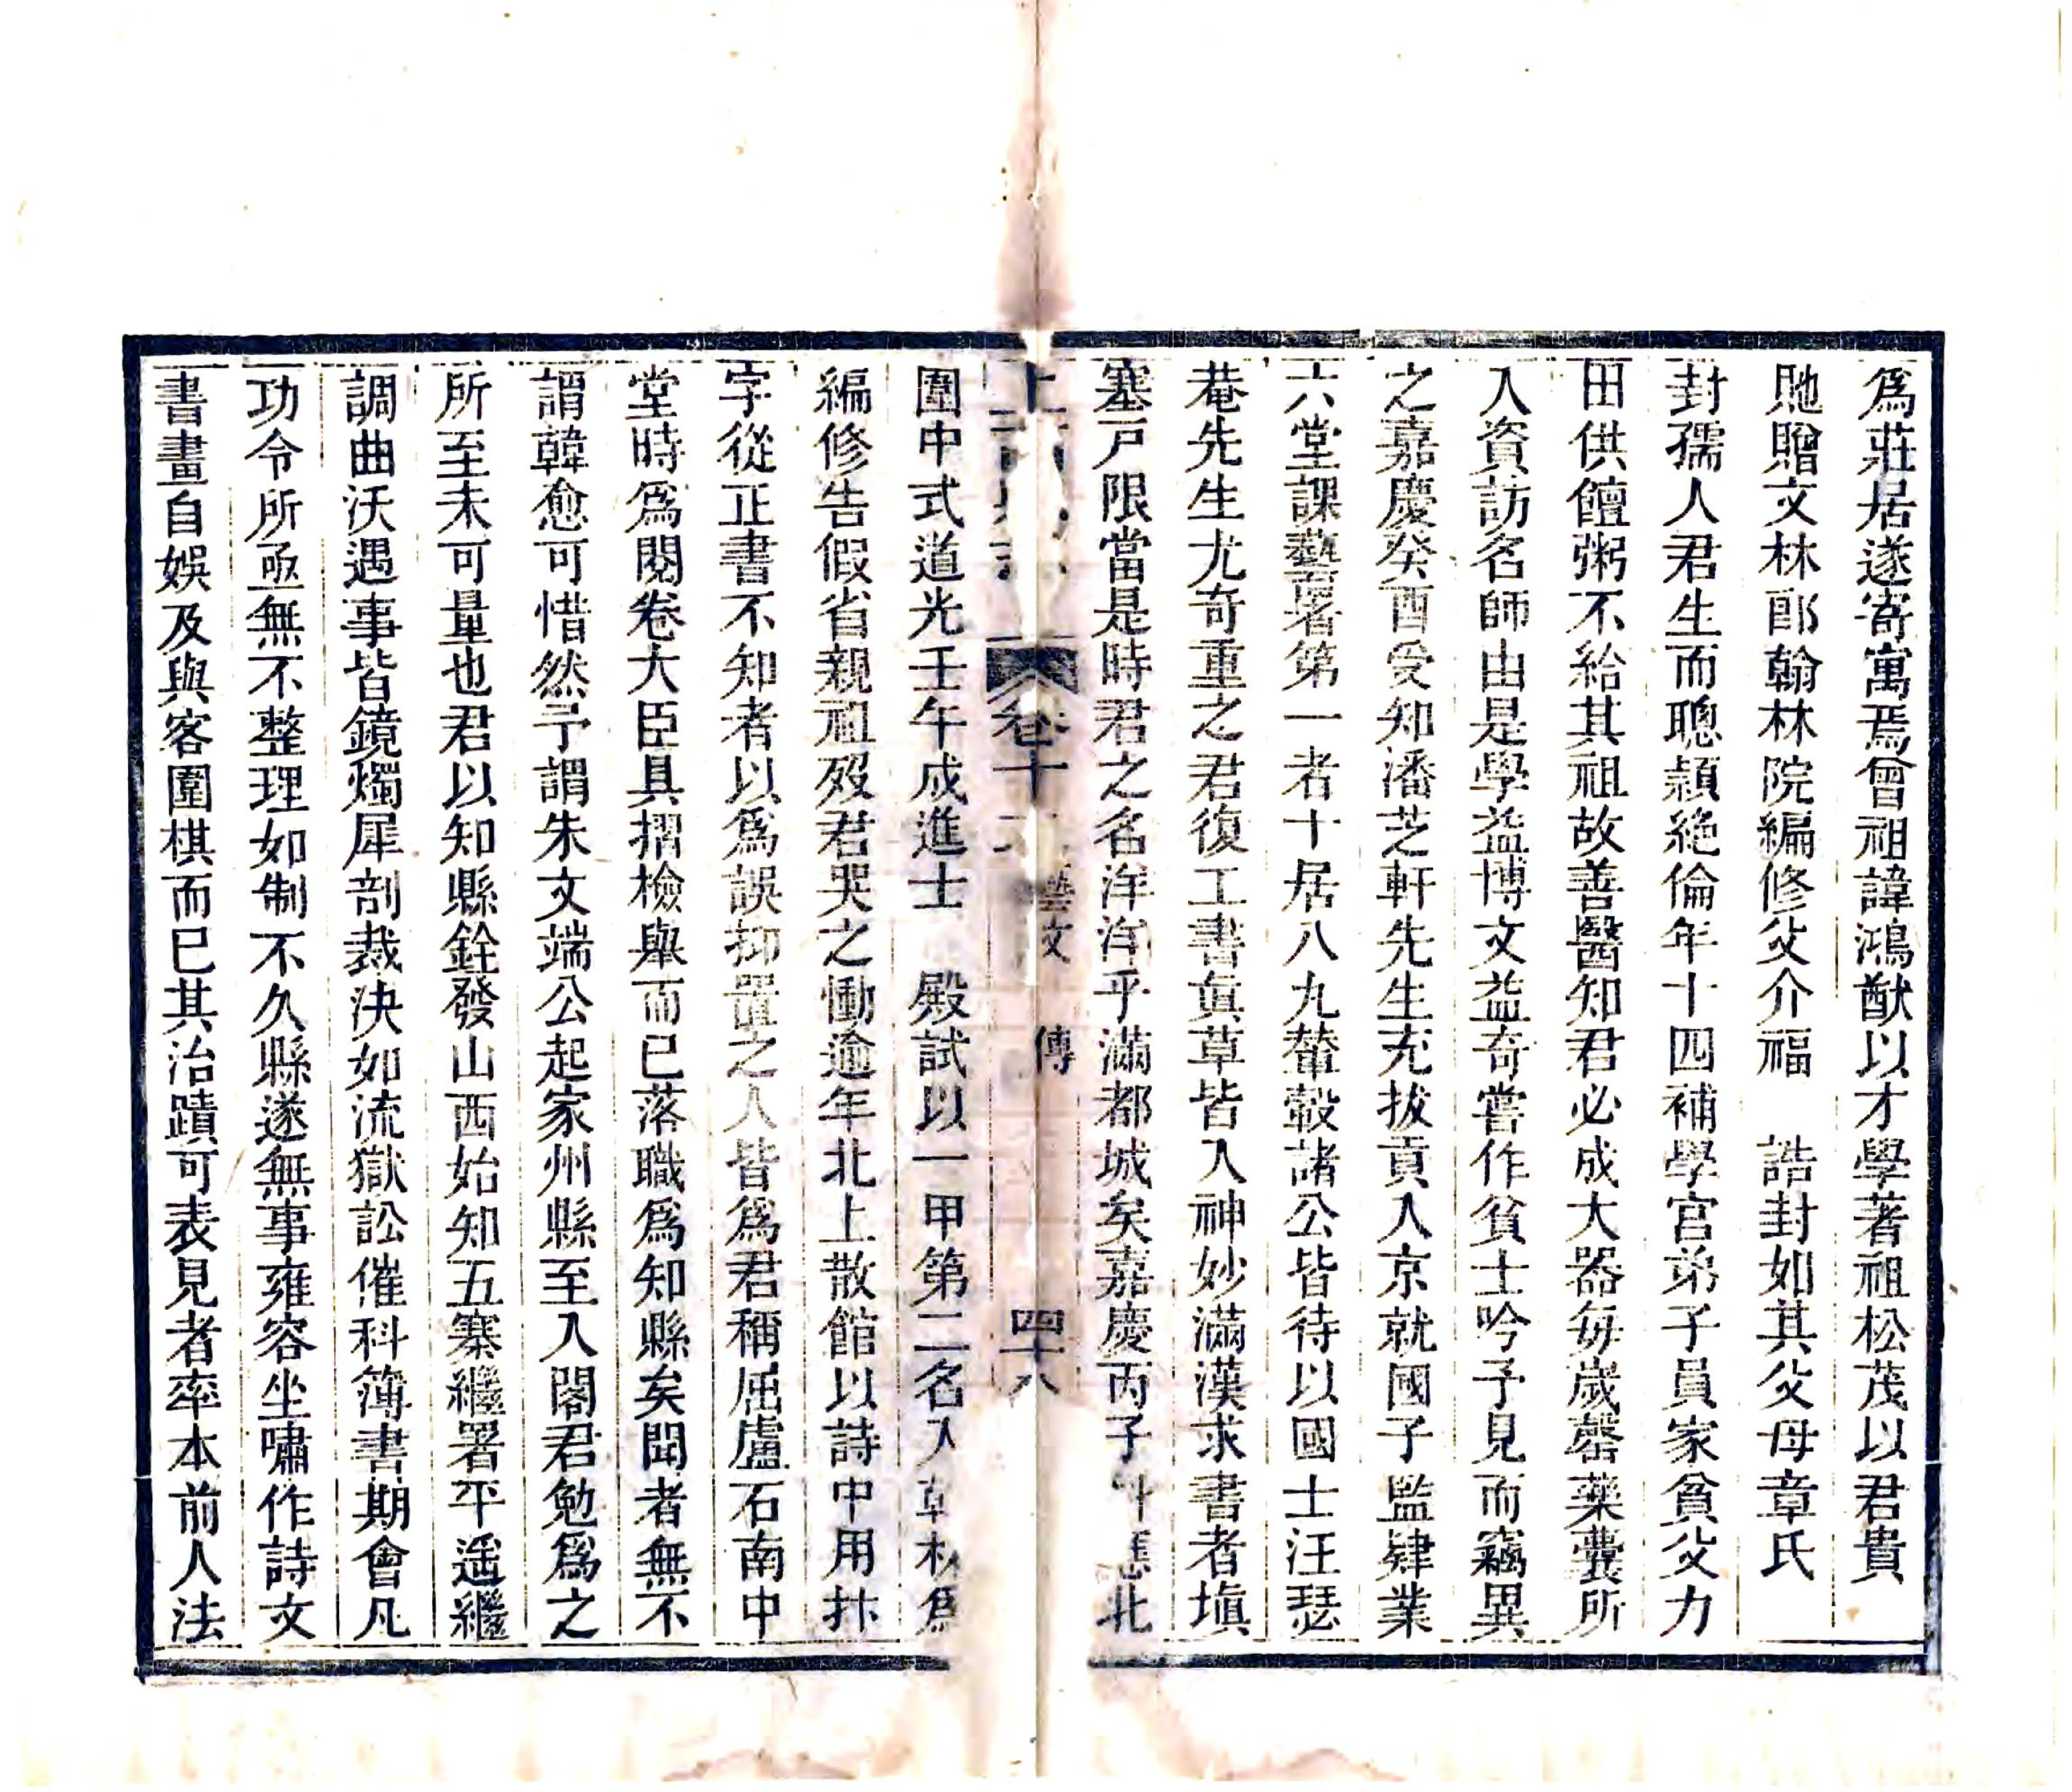 爲莊居遂寄寓焉曾祖諱鴻猷以才學著祖松茂以君貴
貤贈文林郎翰林院編修父介福　誥封如其父母章氏
封孺人君生而聰頴絶倫年十四補學宮弟子員家貧父力
田供饘粥不給其祖故善醫知君必成大器每歲罄藥囊所
入資訪名師由是學益博文益奇嘗作貧士吟予見而竊異
之嘉慶癸酉受知潘芝軒先生充拔貢入京就國子監肄業
六堂課藝署第一者十居八九輦轂諸公皆待以國士汪瑟
菴先生尤奇重之君復工書眞草皆入神妙滿漢求書者塡
塞戸限當是時君之名洋洋乎滿都城矣嘉慶丙子北
上卷十藝文　傳　四十八
圍中式道光壬午成進士　殿試以一甲第二名入爲
編修告假省親祖歿君哭之慟逾年北上散館以詩中用抃
字從正書不知者以爲誤抑置之人皆爲君稱屈盧石南中
堂時爲閱卷大臣具摺檢舉而已落職爲知縣矣聞者無不
謂韓愈可惜然予謂朱文端公起家州縣至入閣君勉爲之
所至未可量也君以知縣銓發山西始知五寨繼署平遥繼
調曲沃遇事皆鏡燭犀剖裁決如流獄訟催科簿書期會凡
功令所亟無不整理如制不久縣遂無事雍容坐嘯作詩文
書畫自娛及與客圍棋而已其治蹟可表見者率本前人法